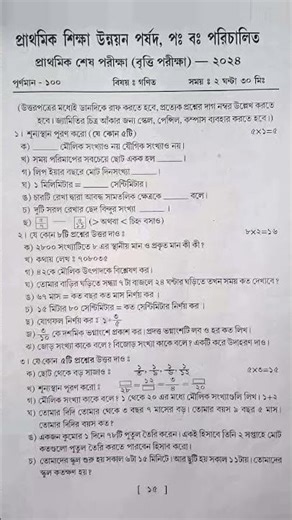 প্রাথমিক শিক্ষা উন্নয়ন পর্ষদ, পঃ বঃ পরিচালিত
প্রাথমিক শেষ পরীক্ষা (বৃত্তি পরীক্ষা) — ২০২৪
পূর্ণমান - ১০০ বিষয় : গণিত সময় : ২ ঘন্টা ৩০ মিঃ
(উত্তরপত্রের মধ্যেই ডানদিকে রাফ করতে হবে, প্রত্যেক প্রশ্নের দাগ নম্বর উল্লেখ করতে
হবে। জ্যামিতির চিত্র আঁকার জন্য স্কেল, পেন্সিল, কম্পাস ব্যবহার করতে হবে।)
১। শূন্যস্থান পূরণ করো। (যে কোন ৫টি) ৫×১=৫
ক) ______ মৌলিক সংখ্যাও নয় যৌগিক সংখ্যাও নয়।
খ) সময় পরিমাপের সবচেয়ে ছোট একক হল ______।
গ) লিপ ইয়ার বছরে মোট দিনসংখ্যা ______।
ঘ) ১ মিলিমিটার = ______ সেন্টিমিটার।
ঙ) চারটি রেখা দ্বারা আবদ্ধ সামতলিক ক্ষেত্রকে ______ বলে।
চ) দুটি সরল রেখার ছেদ বিন্দুর সংখ্যা ______।
(> অথবা < চিহ্ন বসাও)
২। যে কোন ৮টি প্রশ্নের উত্তর দাও : ৮×২=১৬
ক) ২৮০০ সংখ্যাটিতে ৮ এর স্থানীয় মান ও প্রকৃত মান কী কী?
খ) কথায় লেখ : ৭০৮০৩৫
গ) ৪২কে মৌলিক উৎপাদকে বিশ্লেষণ কর।
ঘ) তোমার বাড়ির ঘড়িতে সন্ধ্যা ৭ টা বাজলে ২৪ ঘন্টার ঘড়িতে তখন সময় কত দেখাবে?
ঙ) ৬৭ মাস = কত বছর কত মাস নির্ণয় কর।
চ) ১৫ মিটার ৮০ সেন্টিমিটার = কত সেন্টিমিটার নির্ণয় কর।
ছ) যোগফল নির্ণয় কর :
জ) কে দশমিক ভগ্নাংশে প্রকাশ কর। প্রদত্ত ভগ্নাংশটি লব ও হর কত লিখ।
ঝ) জোড় সংখ্যা কাকে বলে? বিজোড় সংখ্যা কাকে বলে? একটি করে উদাহরণ দাও।
৩। যে কোন ৫টি প্রশ্নের উত্তর দাও : ৫×৩=১৫
ক) ছোট থেকে বড় সাজাও :
খ) শূন্যস্থান পূরণ করো :
গ) মৌলিক সংখ্যা কাকে বলে? ১ থেকে ২০ এর মধ্যে মৌলিক সংখ্যাগুলি লিখ। ১+২
ঘ) তোমার দিদি তোমার থেকে ৩ বছর ৭ মাসের বড়। তোমার বয়স ৯ বছর ৫ মাস।
তোমার দিদির বয়স কত?
ঙ) একজন কুমোর ১ দিনে ৭৮টি পুতুল তৈরি করেন। একই হিসাবে তিনি ২ সপ্তাহে মোট
কতগুলো পুতুল তৈরি করতে পারবেন হিসাব করো।
চ) তোমাদের স্কুল শুরু হয় সকাল ৬টা ১৫ মিনিটে। আর ছুটি হয় সকাল ১১টায়। তোমাদের
স্কুল কতক্ষণ হয়?
[ ১৫ ]